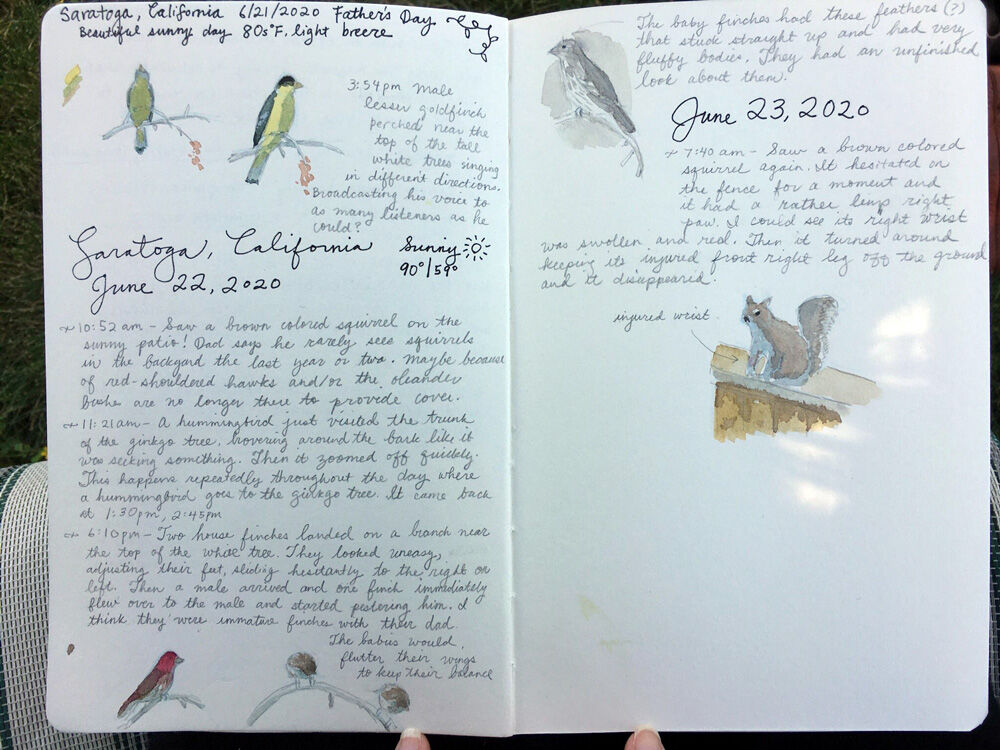 Saratoga, California 6/21/2020 Father's Day
Beautiful sunny day 80s°F, light breeze
3:54pm Male
lesser goldfinch
perched near the
top of the tall
white trees singing
in different directions.
Broadcasting his voice to
as many listeners as he
could?
Saratoga, California
Sunny
90°/59°
June 22, 2020
~ 10:52 am - Saw a brown colored squirrel on the
sunny patio! Dad says he rarely sees squirrels
in the backyard the last year or two. Maybe because
of red-shouldered hawks and/or the oleander
bushes are no longer there to provide cover.
~ 11:21am - A hummingbird just visited the trunk
of the ginkgo tree, hovering around the bark like it
was seeking something. Then it zoomed off quickly.
This happens repeatedly throughout the day where
a hummingbird goes to the ginkgo tree. It came back
at 1:30pm, 2:45pm
~ 6:10pm - Two house finches landed on a branch near
the top of the white tree. They looked uneasy,
adjusting their feet, sliding hesitantly to the right or
left. Then a male arrived and one finch immediately
flew over to the male and started pestering him. I
think they were immature finches with their dad.
The babies would
flutter their wings
to keep their balance
The baby finches had these feathers (?)
that stuck straight up and had very
fluffy bodies. They had an unfinished
look about them.
June 23, 2020
~ 7:40 am - Saw a brown colored
squirrel again. It hesitated on
the fence for a moment and
it had a rather limp right
paw. I could see its right wrist
was swollen and red. Then it turned around
keeping its injured front right leg off the ground
and it disappeared.
injured wrist